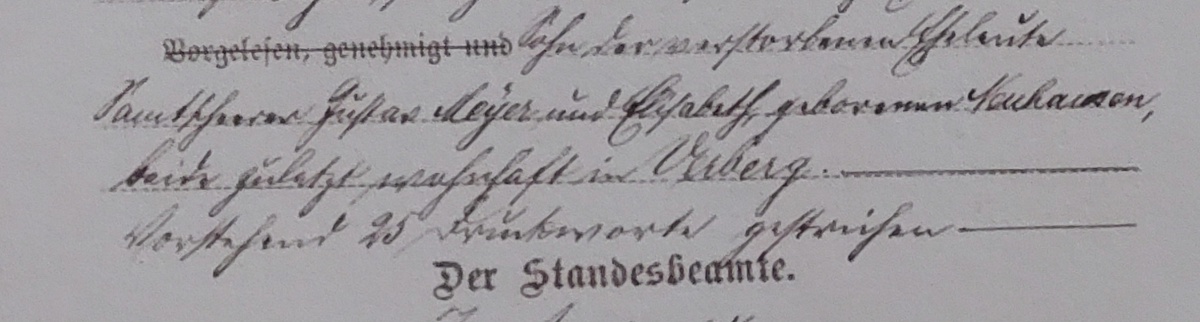 Vorgelesen, genehmigt und Sohn der verstorbenen Eheleute
Samtscheerer Gustav Meyer und Elisabeth geborenen Neuhausen,
beide zuletzt wohnhaft in Verberg.
Vorstehend 25 Druckworte gestrichen
Der Standesbeamte.